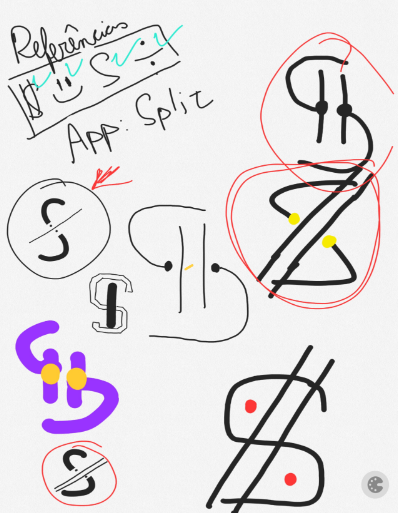 Referências
$ S ÷
App: Split